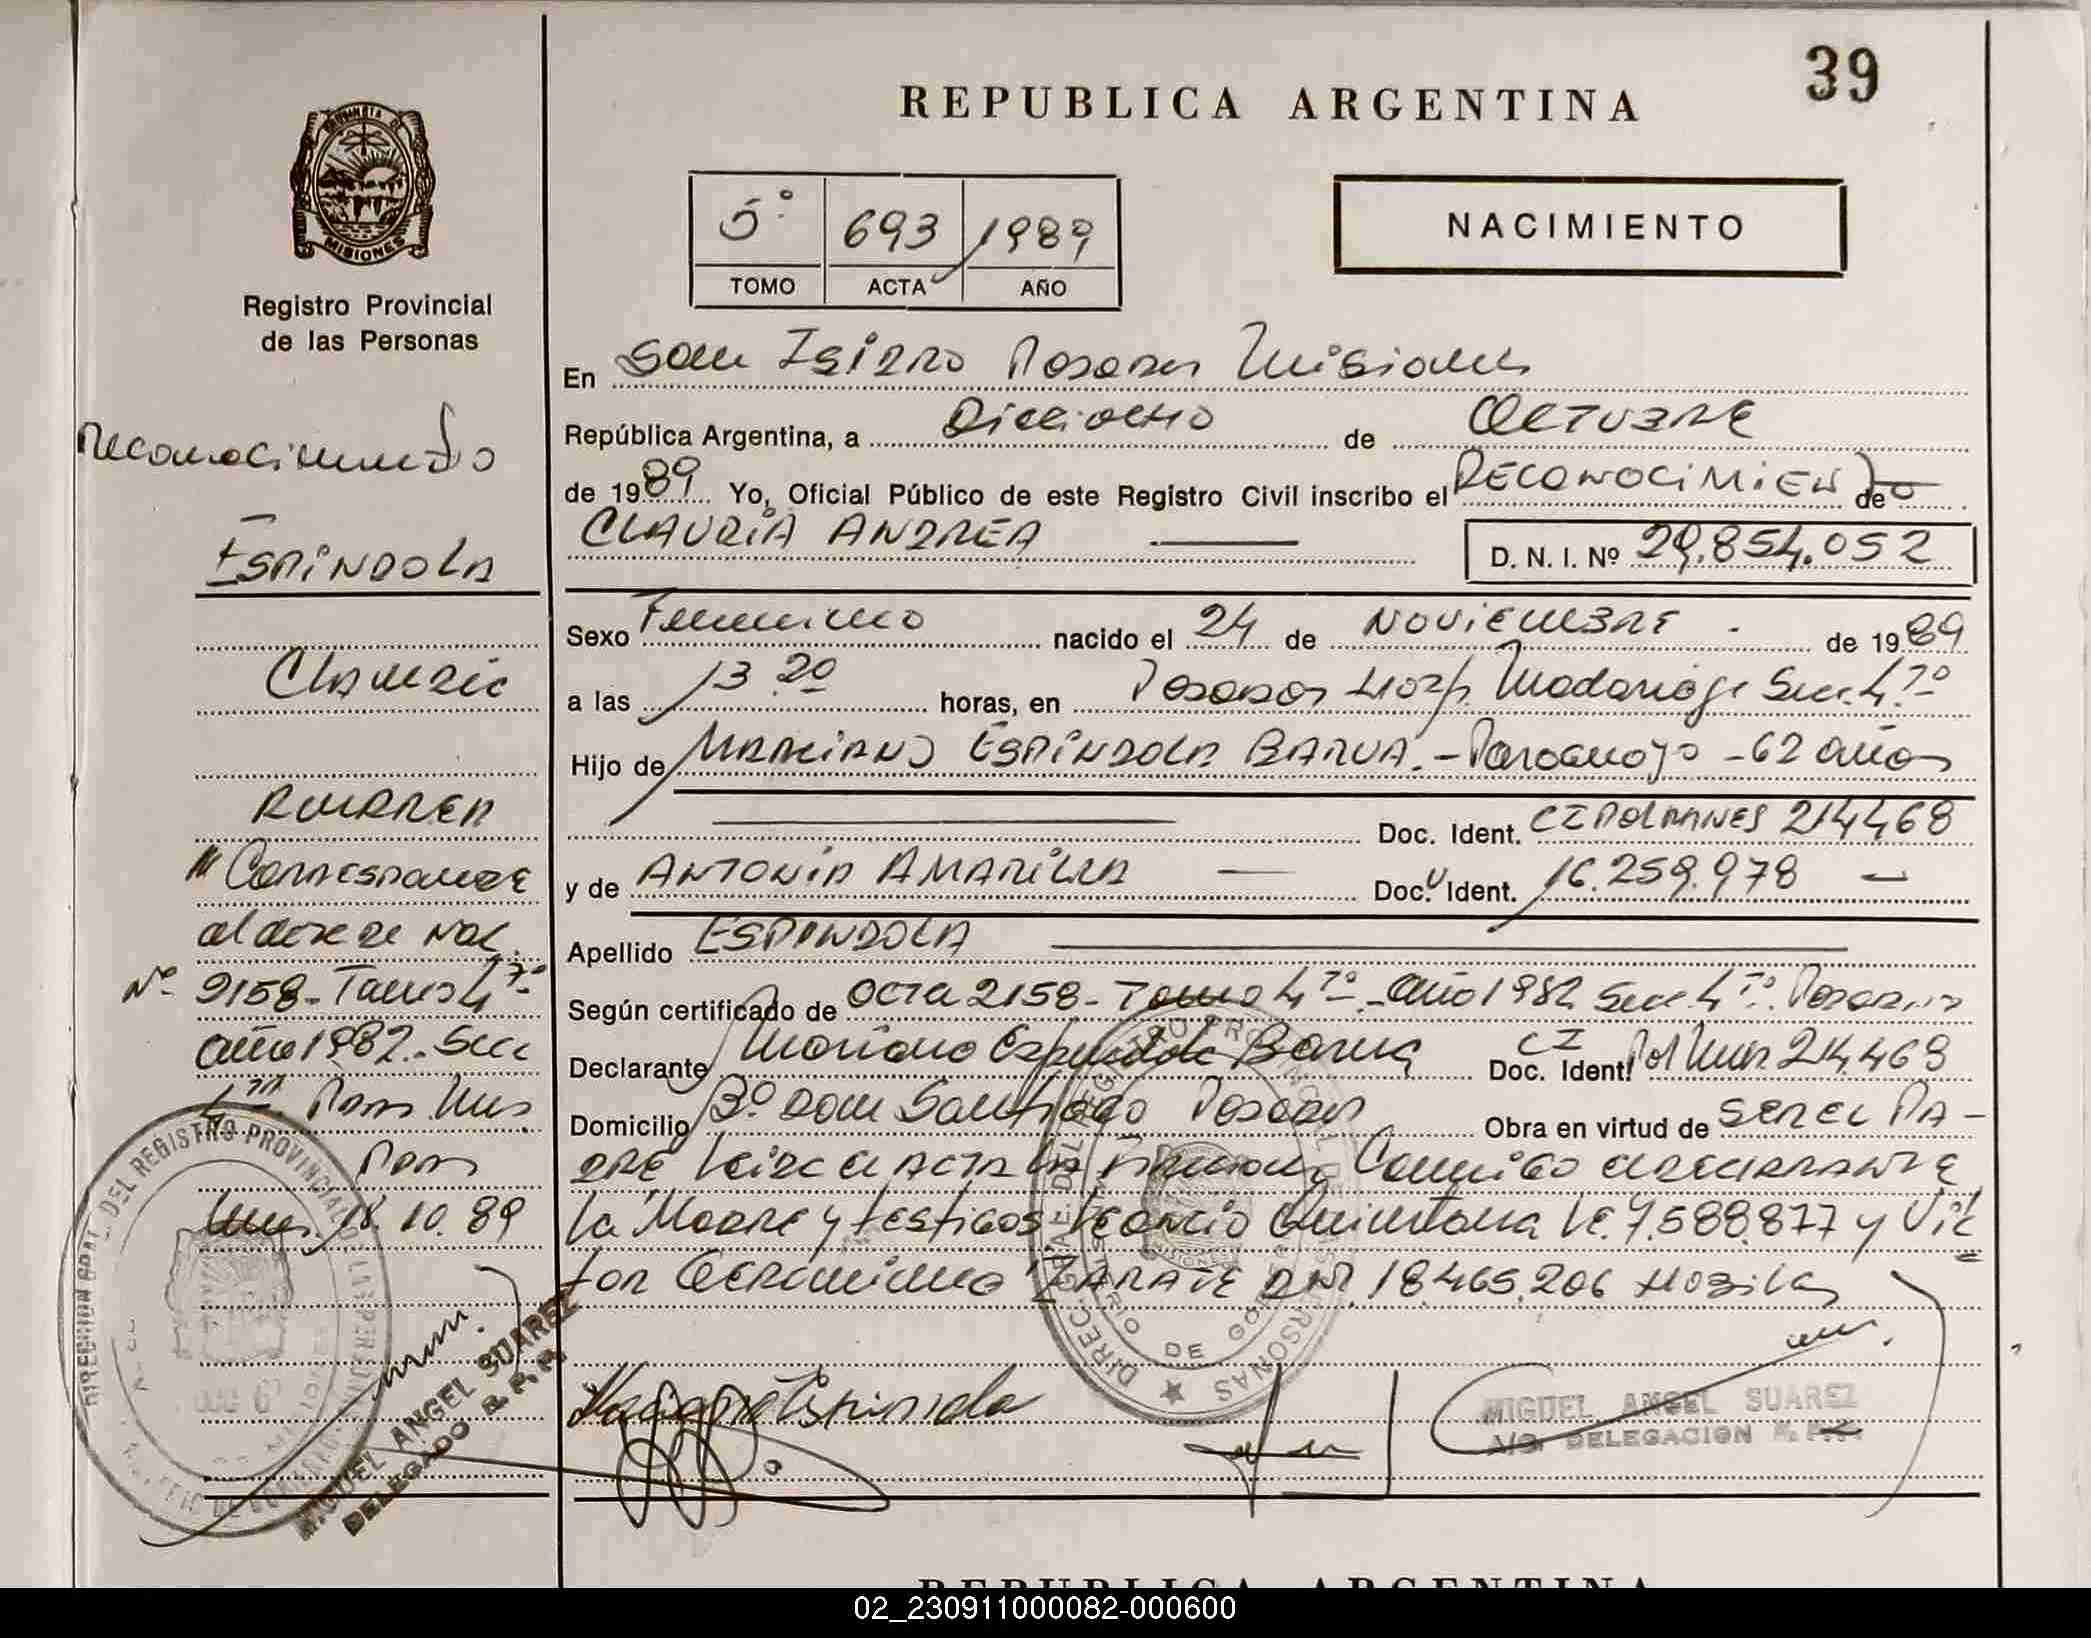 39
REPUBLICA ARGENTINA
5º 693 1989
TOMO ACTA AÑO
NACIMIENTO
PROVINCIA DE
MISIONES
Registro Provincial
de las Personas
En San Isidro Posadas Misiones
República Argentina, a Dieciocho de OCTUBRE
de 1989 Yo, Oficial Público de este Registro Civil inscribo el RECONOCIMIENTO de
CLAUDIA ANDREA D. N. I. Nº 29.854.052
Sexo Femenino nacido el 24 de NOVIEMBRE de 1989
a las 13 20 horas, en Posadas Hosp. Madariaga Secc. 4ta
Hijo de MARCIANO ESPÍNDOLA BARUA.- Paraguayo - 62 años
Doc. Ident. CI POL MNES 214468
y de ANTONIA AMARILLA Doc. Ident. 16.259.978
Apellido ESPINDOLA
Según certificado de acta 2158 - Tomo 4to - año 1982 Secc 4ta Posadas
Declarante Espindola Barua Doc. Ident. CI Pol 214.468
Domicilio Bº Don Santiago Posadas Obra en virtud de SER EL PA-
DRE el declarante
la Madre y testigos Leoncio Quintana LE. 7.588.877 y Víc
tor Geronimo ZARATE DNI. 18.465.206 Hábiles
Espindola
MIGUEL ANGEL SUAREZ
A/C. DELEGACION R. P. P.
reconocimiento
ESPÍNDOLA
Claudia
ANDREA
Corresponde
al acta de Nac.
Nº 2158 - Tomo 4to
año 1982. Secc
4ta Pdas Mnes
Pdas
Mnes 18.10.89
MIGUEL ANGEL SUAREZ
DELEGADO R. P. P.
DIRECCION GRAL. DEL REGISTRO PROVINCIAL DE LAS PERSONAS
DIRECC. GRAL. DEL REGISTRO PROVINCIAL DE LAS PERSONAS
REPUBLICA ARGENTINA
02_230911000082-000600